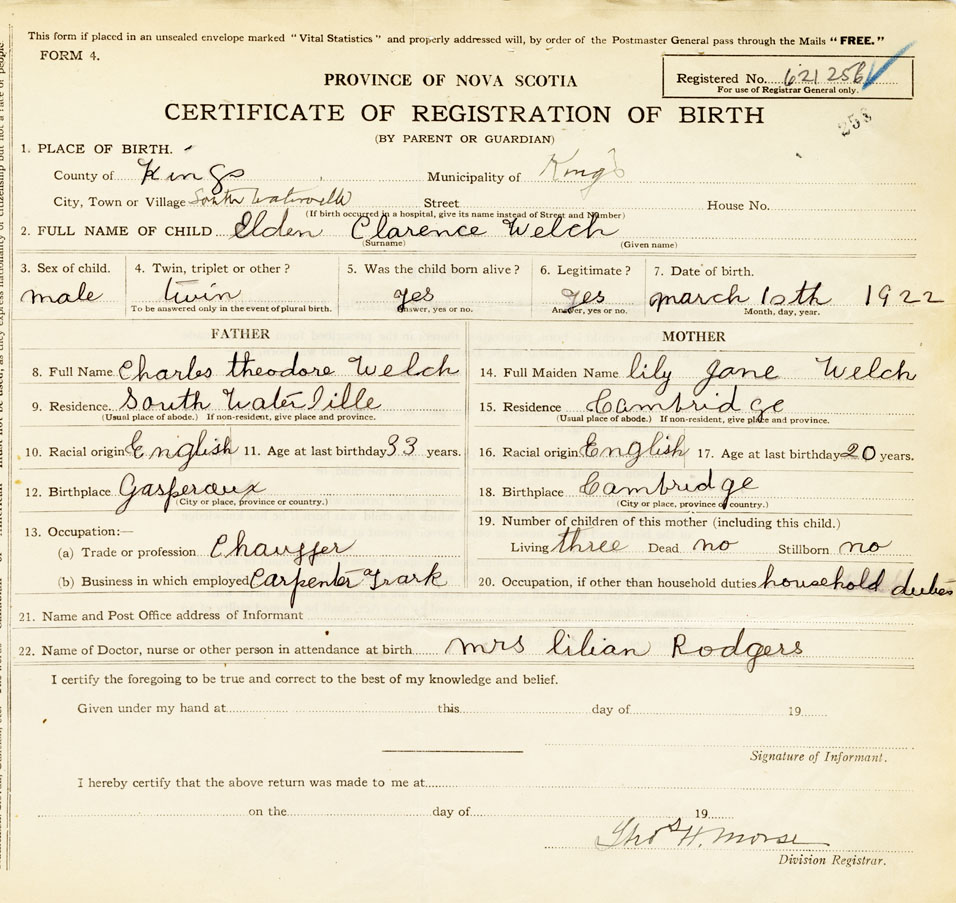 This form if placed in an unsealed envelope marked "Vital Statistics" and properly addressed will, by order of the Postmaster General pass through the Mails "FREE."
FORM 4.
PROVINCE OF NOVA SCOTIA
Registered No. 621 256
For use of Registrar General only.
CERTIFICATE OF REGISTRATION OF BIRTH
253
(BY PARENT OR GUARDIAN)
1. PLACE OF BIRTH.
County of Kings Municipality of Kings
City, Town or Village South Waterville Street House No.
(If birth occurred in a hospital, give its name instead of Street and Number)
2. FULL NAME OF CHILD Elden Clarence Welch
(Surname) (Given name)
3. Sex of child. 4. Twin, triplet or other? 5. Was the child born alive? 6. Legitimate? 7. Date of birth.
male twin yes yes march 10th 1922
To be answered only in the event of plural birth. Answer, yes or no. Answer, yes or no. Month, day, year.
FATHER MOTHER
8. Full Name Charles theodore Welch 14. Full Maiden Name lily Jane Welch
9. Residence South Waterville 15. Residence Cambridge
(Usual place of abode.) If non-resident, give place and province. (Usual place of abode.) If non-resident, give place and province.
10. Racial origin English 11. Age at last birthday 33 years. 16. Racial origin English 17. Age at last birthday 20 years.
12. Birthplace Gasperaux 18. Birthplace Cambridge
(City or place, province or country.) (City or place, province or country.)
13. Occupation:— 19. Number of children of this mother (including this child.)
(a) Trade or profession Chauffer Living three Dead no Stillborn no
(b) Business in which employed Carpenter 20. Occupation, if other than household duties household duties
21. Name and Post Office address of Informant
22. Name of Doctor, nurse or other person in attendance at birth mrs lilian Rodgers
I certify the foregoing to be true and correct to the best of my knowledge and belief.
Given under my hand at this day of 19
Signature of Informant.
I hereby certify that the above return was made to me at
on the day of 19
Thos H. Morse
Division Registrar.